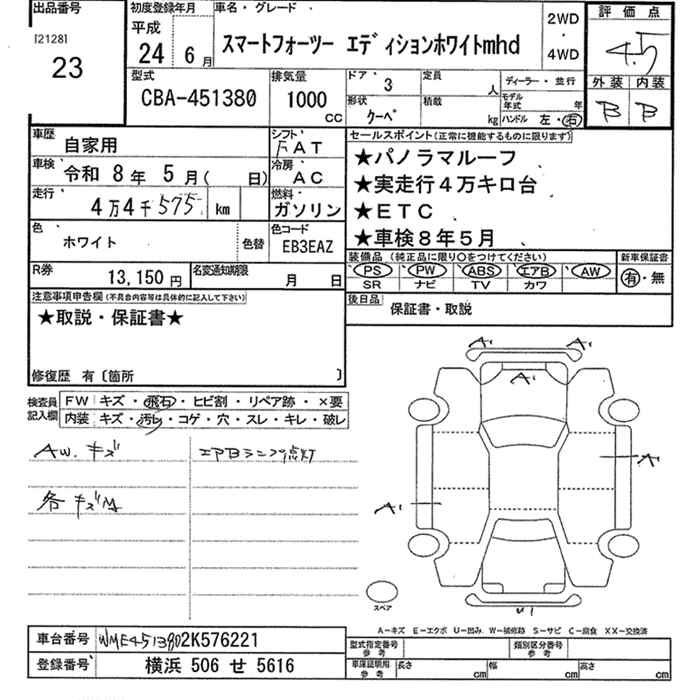 出品番号
I21281
23
初度登録年月
平成
24 6月
車名・グレード
スマートフォーツー エディションホワイトmhd
2WD
・
4WD
評価点
4.5
外装 内装
B B
型式
CBA-451380
排気量
1000
CC
ドア 3
形状 クーペ
定員 人
積載 kg
ディーラー・並行
モデル年式 年
ハンドル 左・右
車歴 自家用
シフト FAT
車検 令和 8年 5月( 日)
冷房 AC
走行 4万4千575 km
燃料 ガソリン
色 ホワイト
色替
色コード EB3EAZ
R券 13,150円
名変通知期限 月 日
セールスポイント(正常に機能するものに限ります)
★パノラマルーフ
★実走行4万キロ台
★ETC
★車検8年5月
装備品(純正品に限り○をつけてください)
新車保証書
PS PW ABS エアB AW
有・無
SR ナビ TV カワ
後日品 保証書・取説
注意事項申告欄(不具合内容等は具体的に記入して下さい)
★取説・保証書★
修復歴 有〔箇所 〕
検査員記入欄
FW キズ・飛石・ヒビ割・リペア跡・×要
内装 キズ・汚レ・コゲ・穴・スレ・キレ・破レ
AW. キズ
エアBランプ点灯
各キズ
A' A'
A'
A'
A'
U1
スペア
A-キズ E-エクボ U-凹み W-補修跡 S-サビ C-腐食 XX-交換済
車台番号 WME4513802K576221
登録番号 横浜 506 せ 5616
型式指定番号 参考
類別区分番号 参考
車庫証明用 参考
長さ cm
幅 cm
高さ cm